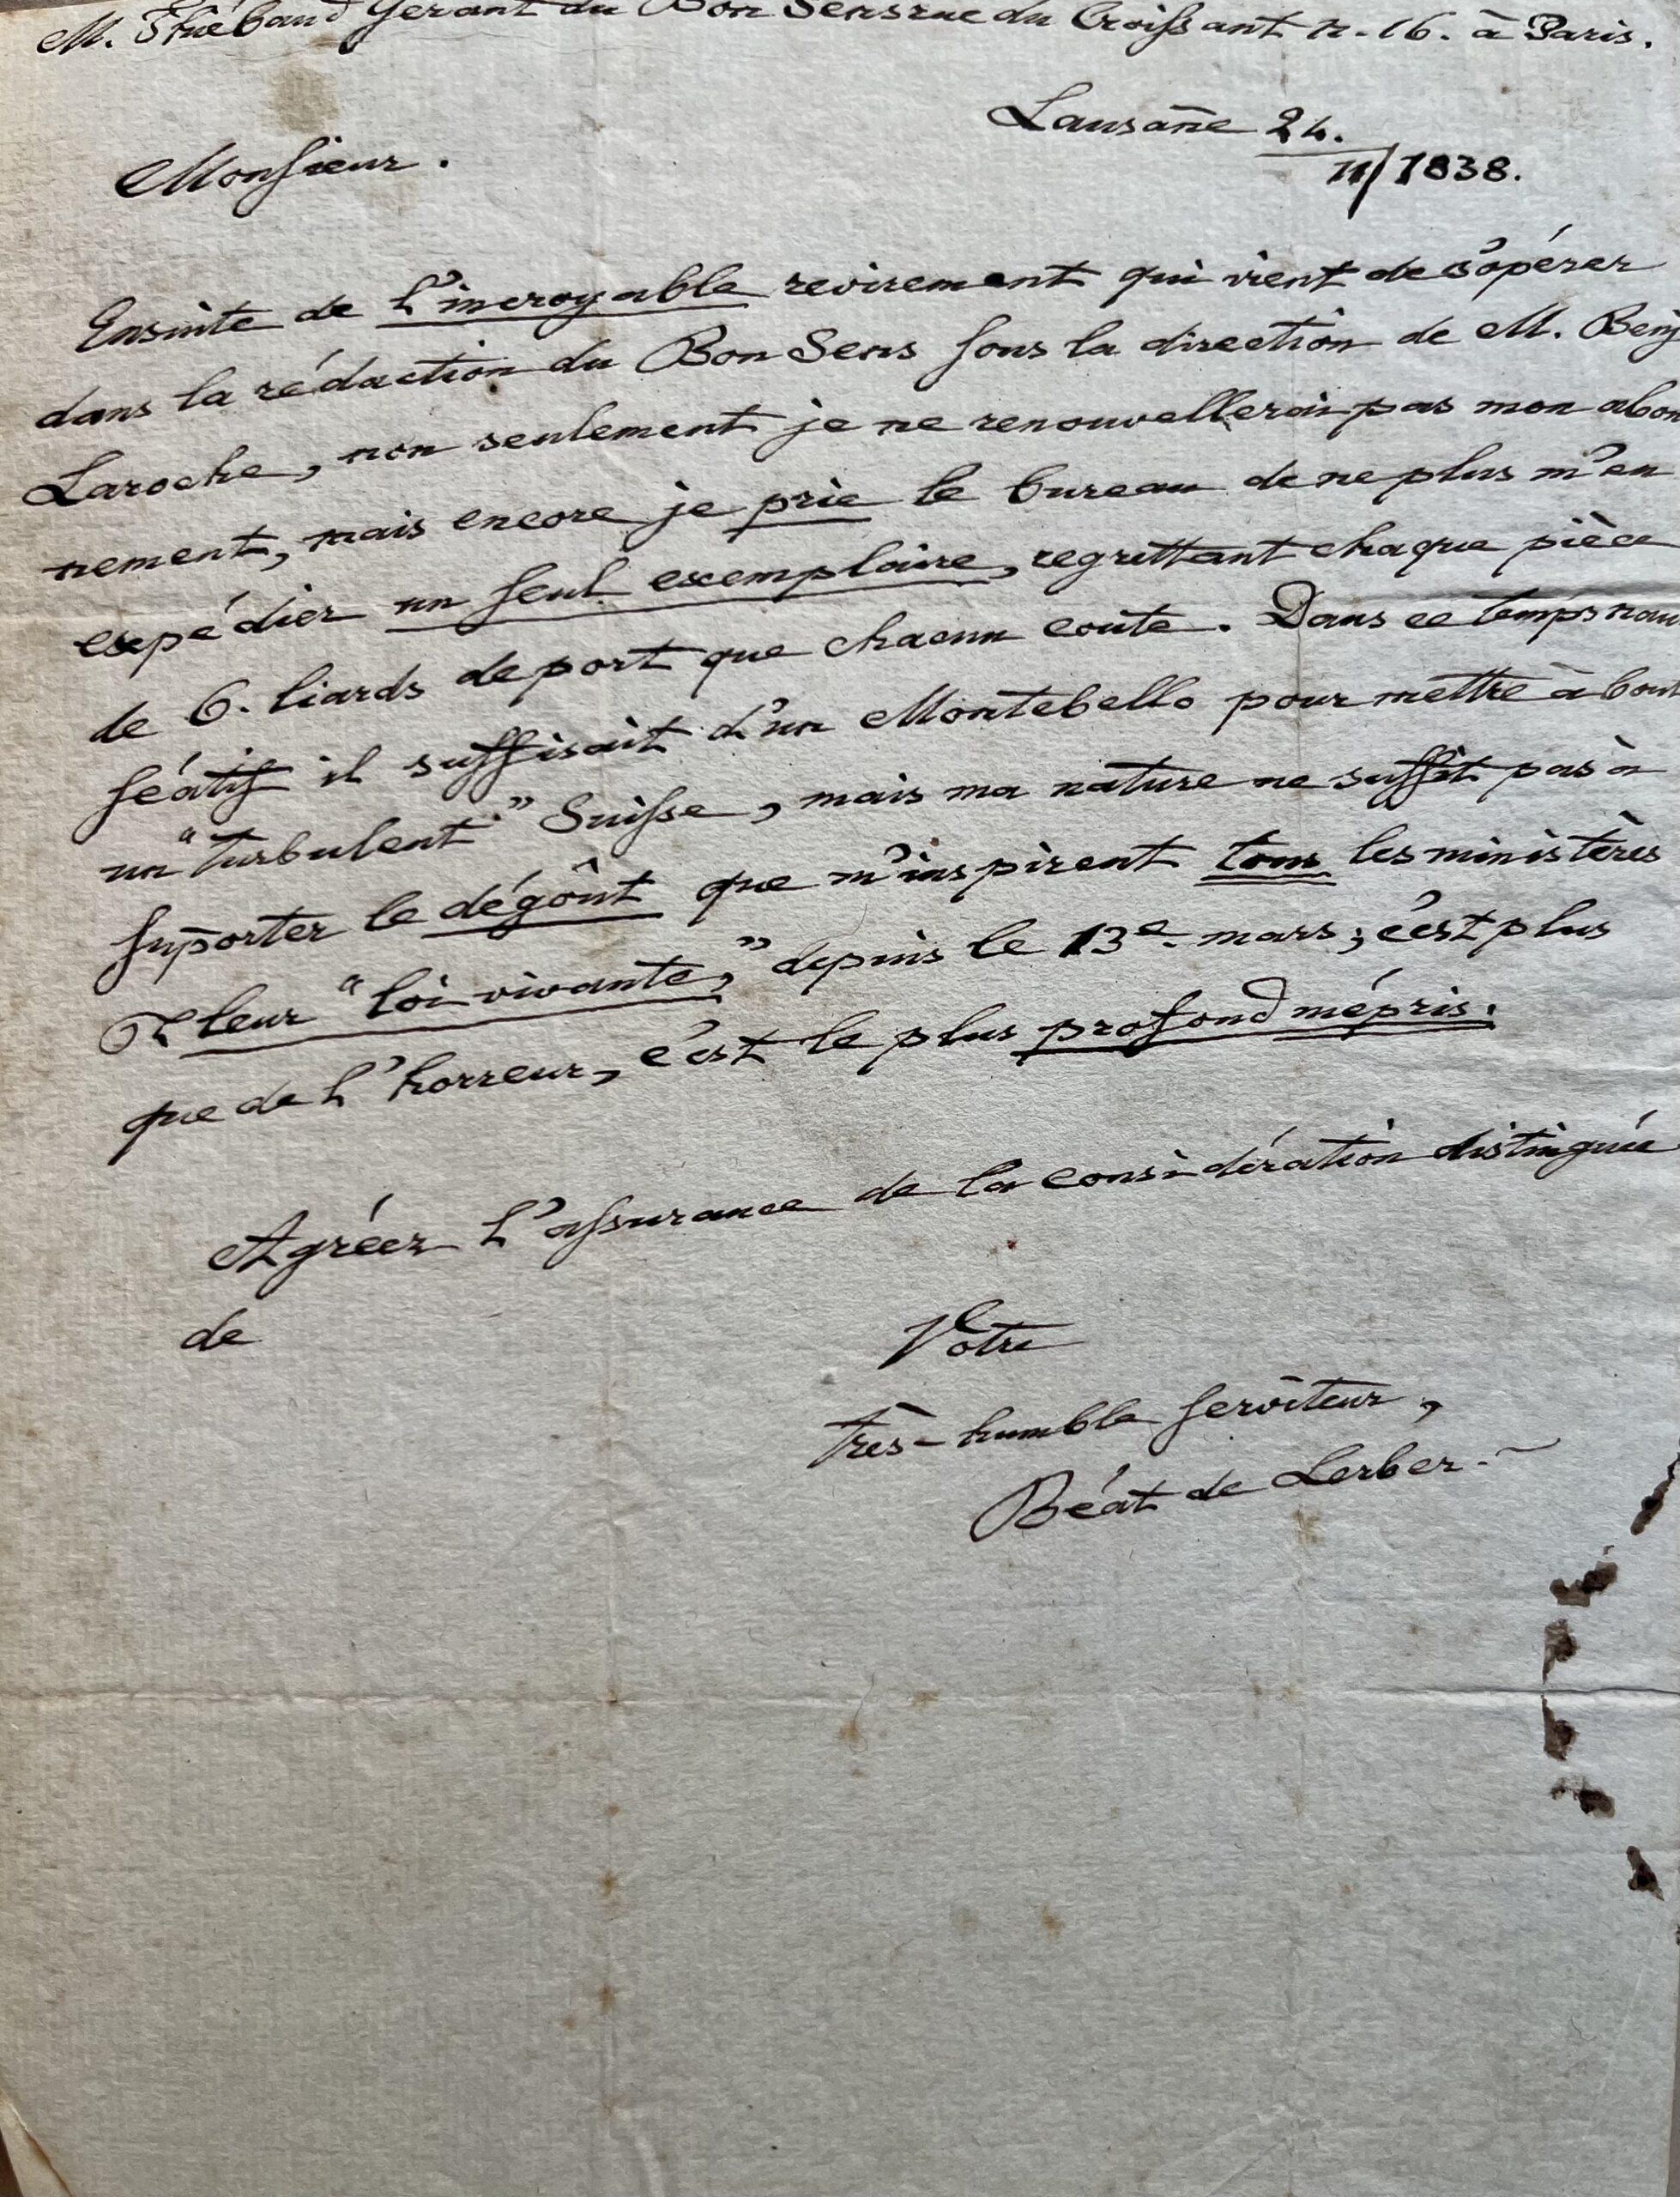 M. Thiébaud Gérant du Bon Sens rue du Croissant n. 16. à Paris.
Lausan̄e 24.
11/1838.
Monsieur.
Ensuite de l'incroyable revirement qui vient de s'opérer
dans la rédaction du Bon Sens sous la direction de M. Benj
Laroche, non seulement je ne renouvellerai pas mon abon
nement, mais encore je prie le bureau de ne plus m'en
expédier un seul exemplaire, regrettant chaque pièce
de 6. liards de port que chacun coute. Dans ce temps nau
séatif il suffisait d'un Montebello pour mettre à bout
un "turbulent" Suisse, mais ma nature ne suffit pas à
sup̄orter le dégôut que m'inspirent tous les ministères
& leur "loi vivante," depuis le 13e. mars; c'est plus
que de l'horreur, c'est le plus profond mépris.
Agréez l'assurance de la considération distinguée
de
Votre
très-humble serviteur,
Béat de Lerber.